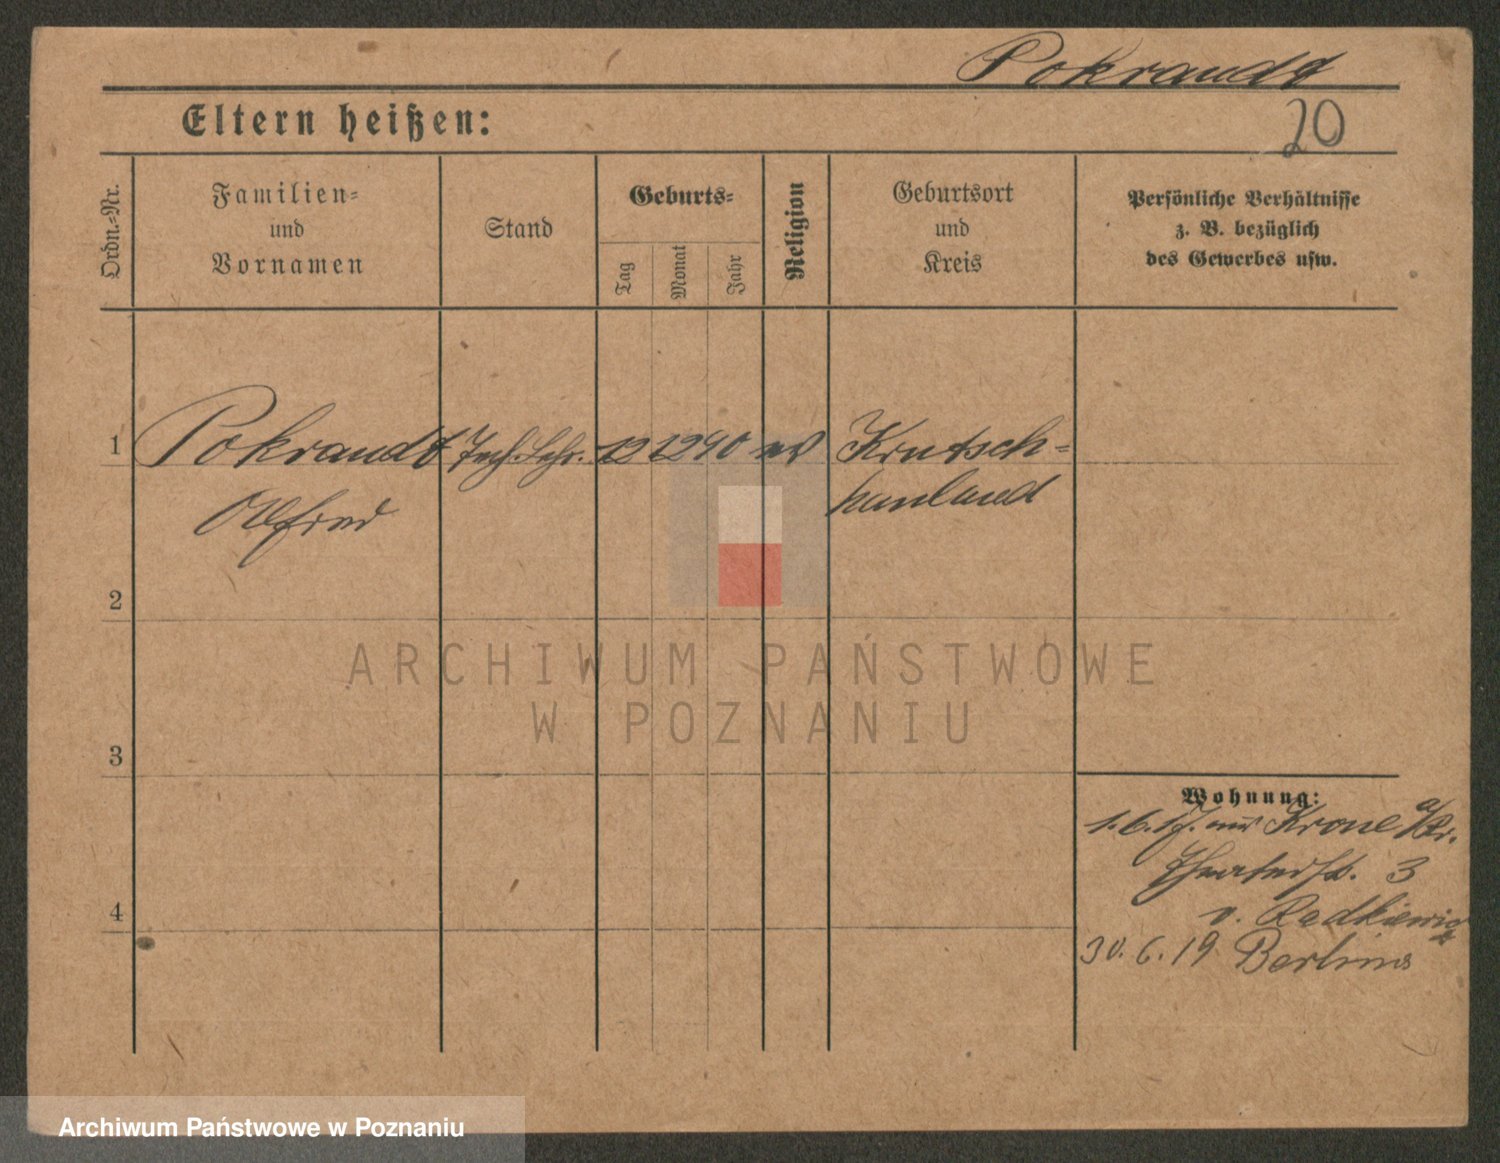 Pokrandt
20
Eltern heißen:
Ordn.-Nr.
Familien-
und
Vornamen
Stand
Geburts-
Tag
Monat
Jahr
Religion
Geburtsort
und
Kreis
Persönliche Verhältnisse
z. B. bezüglich
des Gewerbes usw.
1
Pokrandt
12 12 90 ev
Krutsch-
Alfred
hauland
2
ARCHIWUM PAŃSTWOWE
W POZNANIU
3
Wohnung:
Krone a/Br.
Theaterstr. 3
v. Radkiewicz
4
30. 6. 19 Berlin
Archiwum Państwowe w Poznaniu